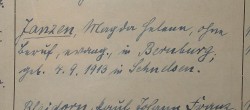 Janzen, Magda Helene, ohne
Beruf, evang., in Bernburg,
geb. 4. 9. 1913 in
Johann Franz